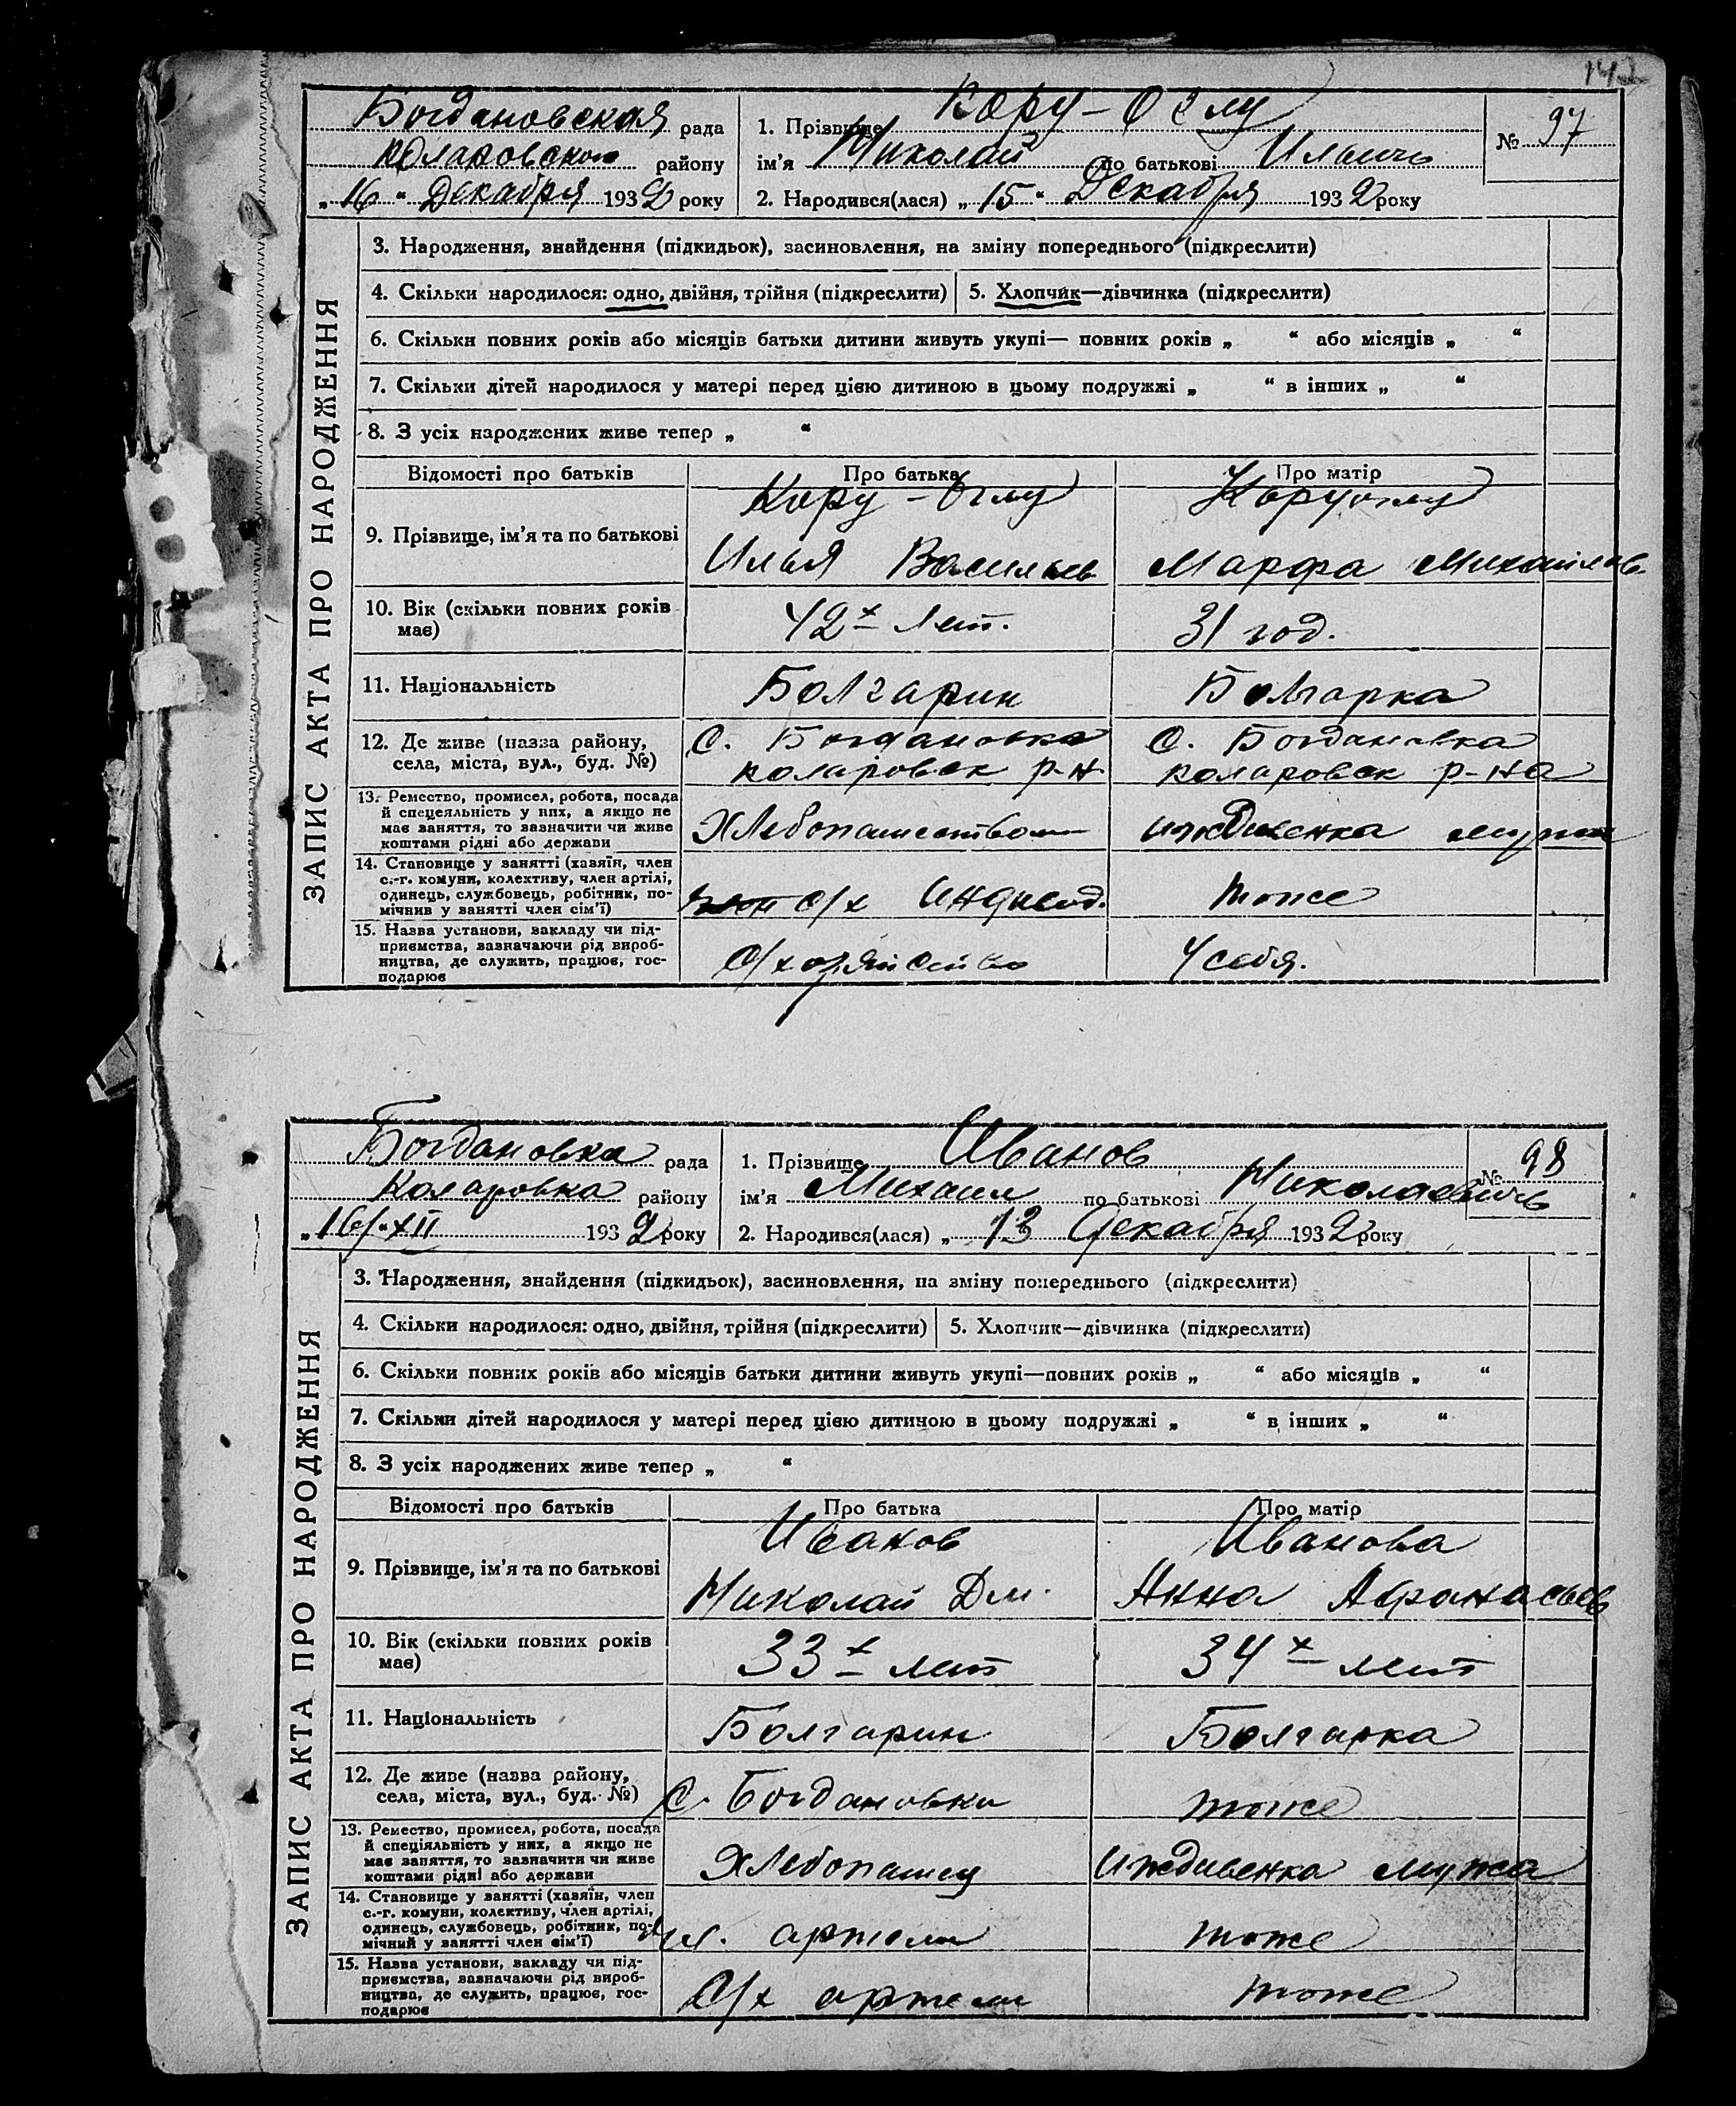 142
Богдановская рада
Коларовском району
„16“ Декабря 1932 року
1. Прізвище Кору-Оглу
ім’я Николай по батькові Ильичь
2. Народився(лася) „15“ Декабря 1932 року
№ 97
ЗАПИС АКТА ПРО НАРОДЖЕННЯ
3. Народження, знайдення (підкидьок), засиновлення, на зміну попереднього (підкреслити)
4. Скільки народилося: одно, двійня, трійня (підкреслити) 5. Хлопчик—дівчинка (підкреслити)
6. Скільки повних років або місяців батьки дитини живуть укупі— повних років „ “ або місяців „ “
7. Скільки дітей народилося у матері перед цією дитиною в цьому подружжі „ “ в інших „ “
8. З усіх народжених живе тепер „ “
Відомості про батьків Про батька Про матір
9. Прізвище, ім’я та по батькові
Кору-Оглу
Илья Васильев
Коруоглу
Марфа Михайлов.
10. Вік (скільки повних років
має)
42х лет.
31 год.
11. Національність
Болгарин
Болгарка
12. Де живе (назва району,
села, міста, вул., буд. №)
С. Богдановка
коларовск р-н.
С. Богдановка
коларовск р-на
13. Ремество, промисел, робота, посада
й спецеяльність у них, а якщо не
має заняття, то зазначити чи живе
коштами рідні або держави
Хлебопашеством
иждивенка мужа
14. Становище у занятті (хазяїн, член
с.-г. комуни, колективу, член артілі,
одинець, службовець, робітник, по-
мічнив у занятті член сім’ї)
с/х Индивид.
тоже
15. Назва установи, закладу чи під-
приємства, зазначаючи рід вироб-
ництва, де служить, працює, гос-
подарює
С/хозяйство
У себя.
Богдановка рада
Коларовка району
„16/XII 1932 року
1. Прізвище Иванов
ім’я Михаил по батькові Николаевичь
2. Народився(лася) „13 Декабря 1932 року
№ 98
ЗАПИС АКТА ПРО НАРОДЖЕННЯ
3. Народження, знайдення (підкидьок), засиновлення, на зміну попереднього (підкреслити)
4. Скільки народилося: одно, двійня, трійня (підкреслити) 5. Хлопчик—дівчинка (підкреслити)
6. Скільки повних років або місяців батьки дитини живуть укупі—повних років „ “ або місяців „ “
7. Скільки дітей народилося у матері перед цією дитиною в цьому подружжі „ “ в інших „ “
8. З усіх народжених живе тепер „ “
Відомості про батьків Про батька Про матір
9. Прізвище, ім’я та по батькові
Иванов
Николай Дм.
Иванова
Анна Афанасьев
10. Вік (скільки повних років
має)
33х лет
34х лет
11. Національність
Болгарин
Болгарка
12. Де живе (назва району,
села, міста, вул., буд. №)
С. Богдановки
тоже
13. Ремество, промисел, робота, посада
й спеціяльність у них, а якщо не
має заняття, то зазначити чи живе
коштами рідні або держави
Хлебопашец
Иждивенка мужа
14. Становище у занятті (хазяїн, член
с.-г. комуни, колективу, член артілі,
одинець, службовець, робітник, по-
мічний у занятті член сім’ї)
чл. артели
тоже
15. Назва установи, закладу чи під-
приємства, зазначаючи рід вироб-
ництва, де служить, працює, гос-
подарює
С/х артели
тоже